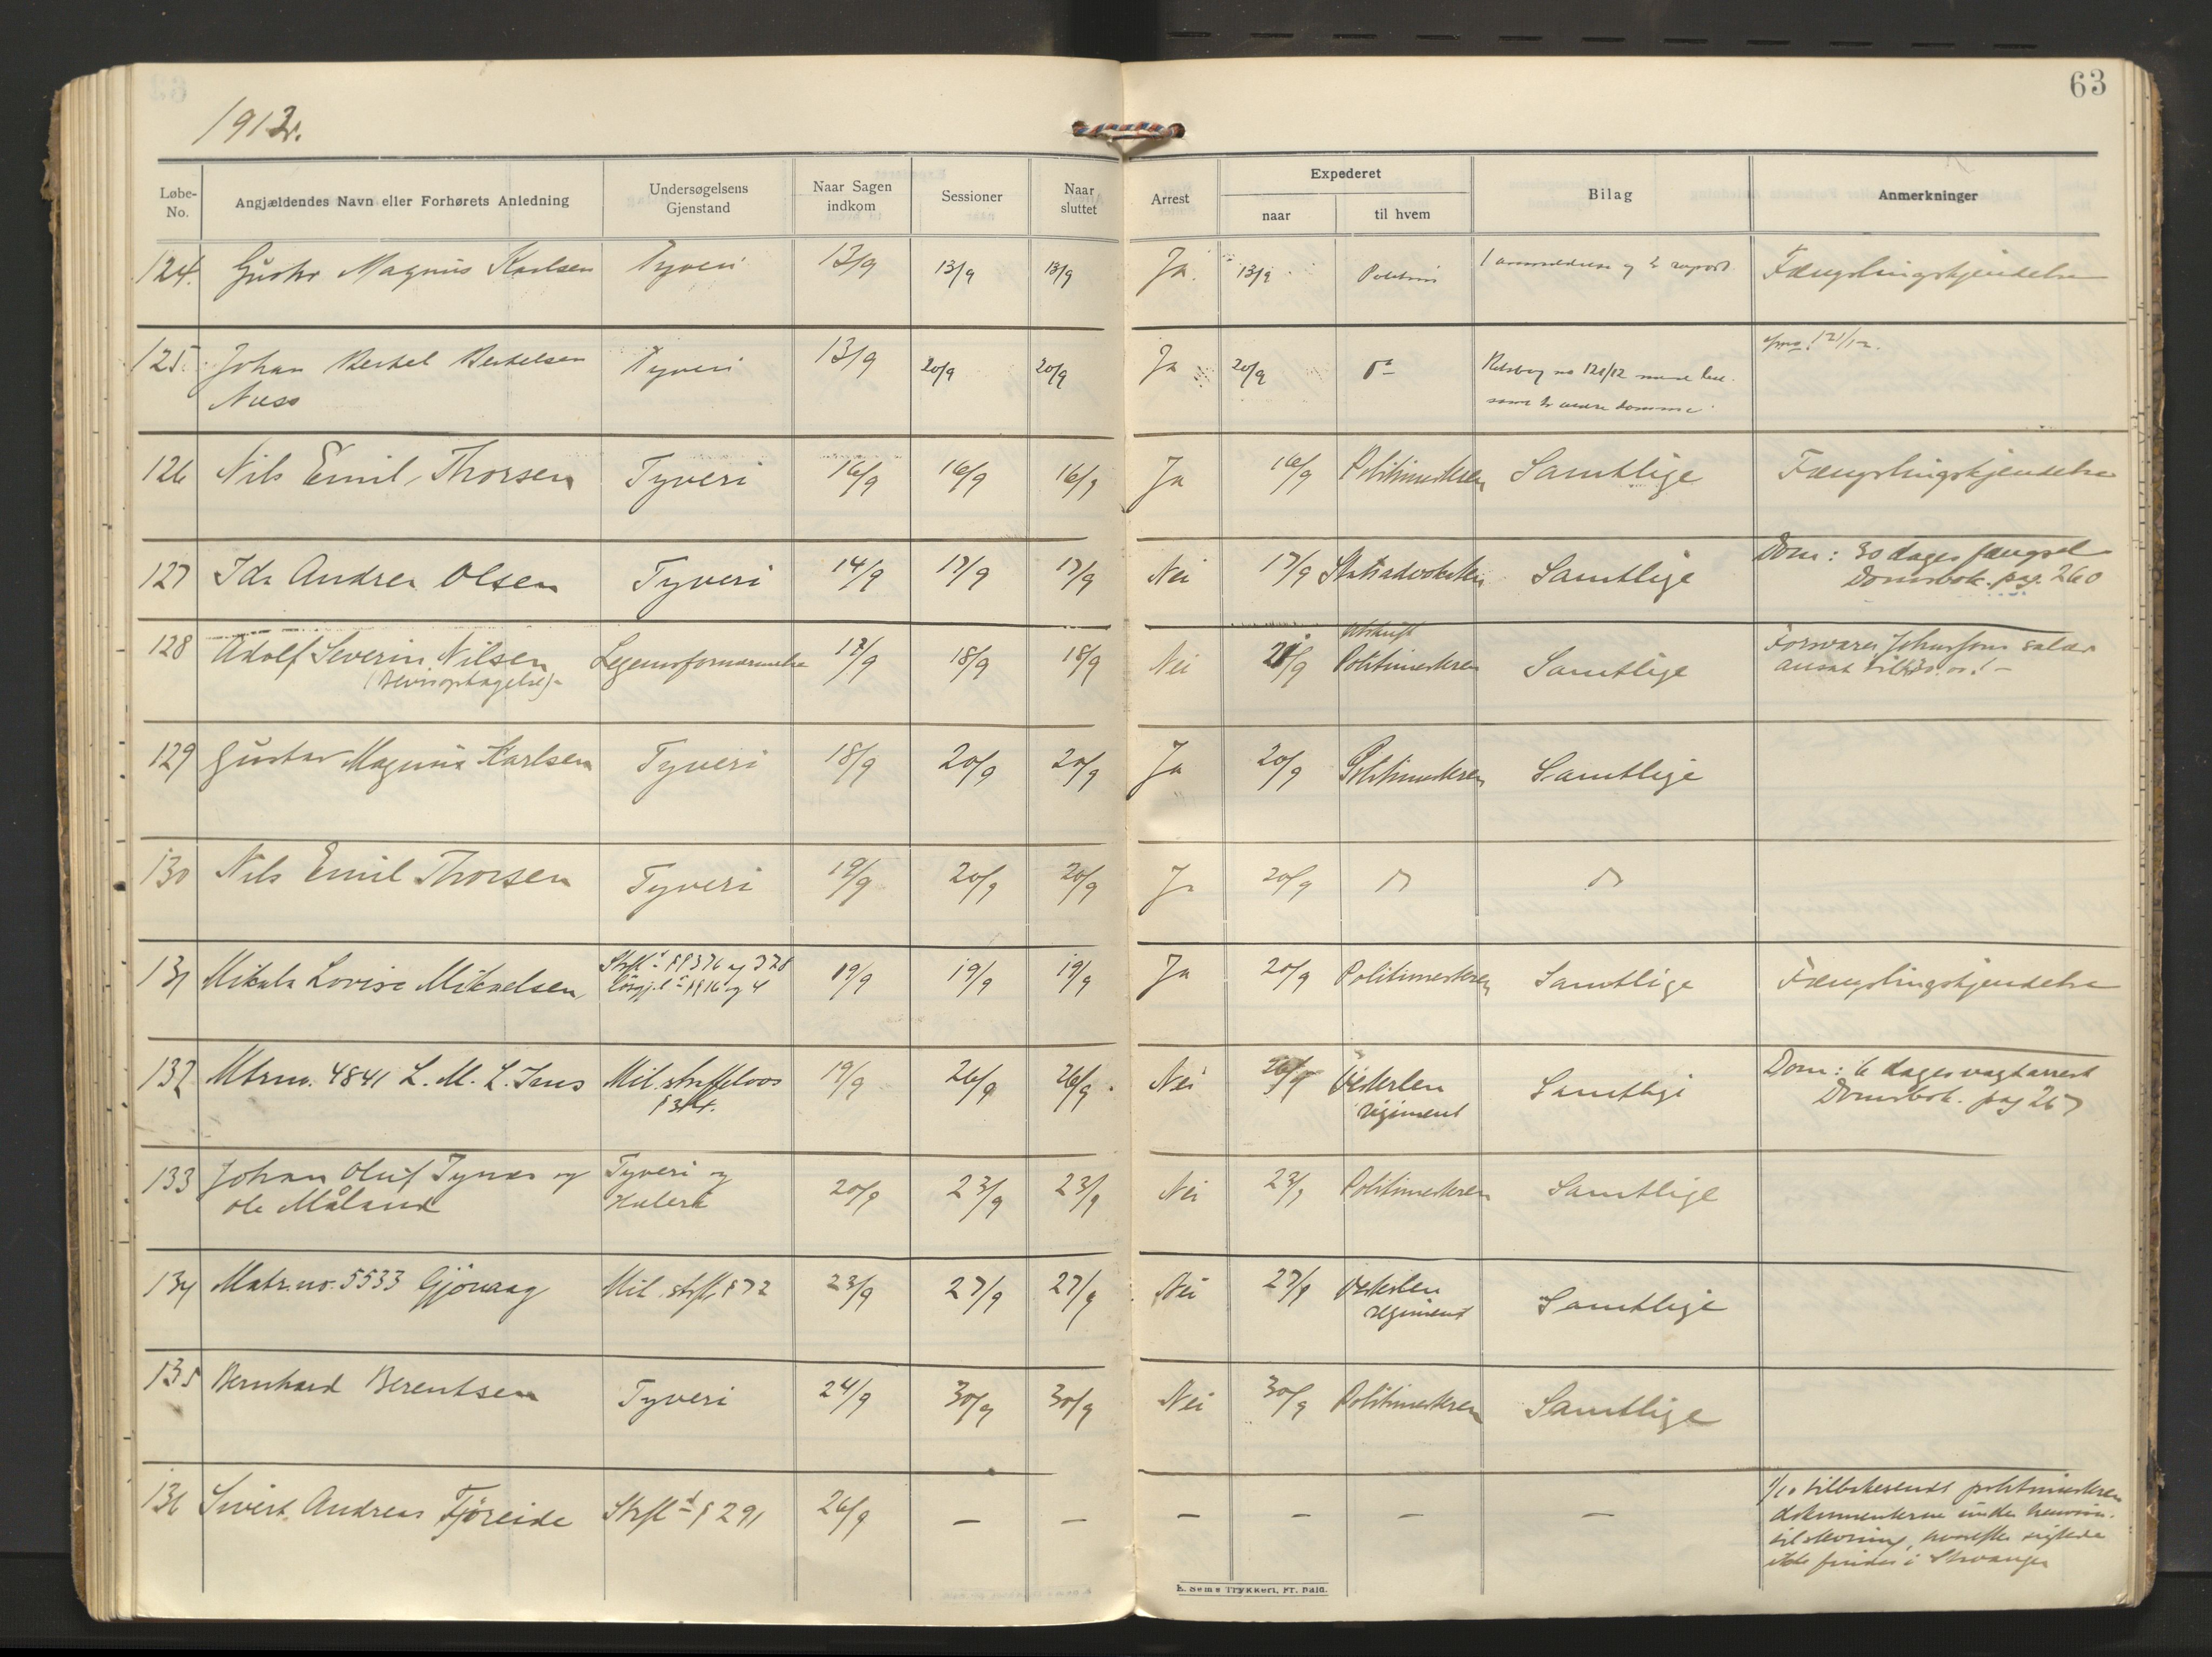 63
1912.
Løbe-No. | Angjældendes Navn eller Forhørets Anledning | Undersøgelsens Gjenstand | Naar Sagen indkom | Sessioner | Naar sluttet | Arrest | Expederet naar | til hvem | Bilag | Anmerkninger
124. Gustav Magnus Karlsen | Tyveri | 13/9 | 13/9 | 13/9 | Ja. | 13/9 | Politim | 1 anmeldelse og 2 rapport | Fængslingskjendelse
125. Johan Bertel Bertelsen | Tyveri | 13/9 | 20/9 | 20/9 | Ja | 20/9 | do | Retsbog no 121/12 med | 121/12.
Næss | samt 2 andre domme
126 Nils Emil Thorsen | Tyveri | 16/9 | 16/9 | 16/9 | Ja | 16/9 | Politimesteren | Samtlige | Fængslingskjendelse
127 Ida Andrea Olsen | Tyveri | 14/9 | 17/9 | 17/9 | Nei | 17/9 | Statsadvokaten | Samtlige | Dom: 30 dages fængsel
Domsbok. pag. 260
128 Adolf Severin Nilsen | Legemsfornærmelse | 17/9 | 18/9 | 18/9 | Nei | 21/9 | Utskrift Politimesteren | Samtlige | Forsvarer Johnsons salær
(Bevisoptagelse) | ansat til
129 Gustav Magnus Karlsen | Tyveri | 18/9 | 20/9 | 20/9 | Ja | 20/9 | Politimesteren | Samtlige
130 Nils Emil Thorsen | Tyveri | 19/9 | 20/9 | 20/9 | Ja | 20/9
131 Mikala Lovise Mikaelsen | Strfl § 376 og 378 | 19/9 | 19/9 | 19/9 | Ja | 20/9 | Politimesteren | Samtlige | Fængslingskjendelse
Løsgj.l § 16 og 4
132 Mtrno. 4841 L. M. L. Jans | Mil. straffelovs | 19/9 | 26/9 | 26/9. | Nei | 26/9 | Vesterlen | Samtlige | Dom: 6 dages vagtarrest
§ 34. | regiment | Domsbok. pag 267
133 Johan Oluf Tynes og | Tyveri og | 20/9 | 23/9 | 23/9 | Nei | 23/9 | Politimesteren | Samtlige
Ole Måland | Heleri
134 Matr.no. 5533 Gjövaag | Mil. strfl. § 72 | 23/9 | 27/9 | 27/9 | Nei | 27/9 | Vesterlen | Samtlige
regiment
135 Bernhard Berentsen | Tyveri | 24/9 | 30/9 | 30/9 | Nei | 30/9 | Politimesteren | Samtlige
136 Sivert Andreas Fjöreide | Strfl § 291 | 26/9 | — | — | — | — | — | — | 1/10 tilbakesendt politimesteren
dokumenterne under
, hvorefter sigtede
ikke findes i Stavanger
E. Sems Trykkeri, Fr. hald.